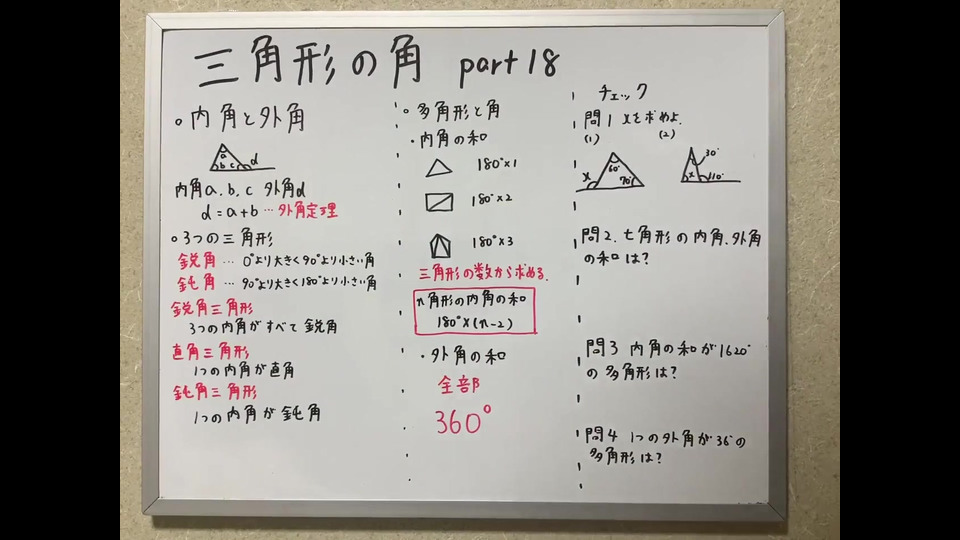 三角形の角 part18
。内角と外角
a
b c d
内角a.b.c 外角d
d=a+b…外角定理
。3つの三角形
鋭角…0°より大きく90°より小さい角
鈍角…90°より大きく180°より小さい角
鋭角三角形
3つの内角がすべて鋭角
直角三角形
1つの内角が直角
鈍角三角形
1つの内角が鈍角
。多角形と角
・内角の和
180°×1
180°×2
180°×3
三角形の数から求める.
n角形の内角の和
180°×(n-2)
・外角の和
全部
360°
チェック
問1 xを求めよ.
(1) (2)
x 60° 70°
30° x 110°
問2.七角形の内角.外角
の和は?
問3 内角の和が1620°
の多角形は?
問4 1つの外角が36°の
多角形は?